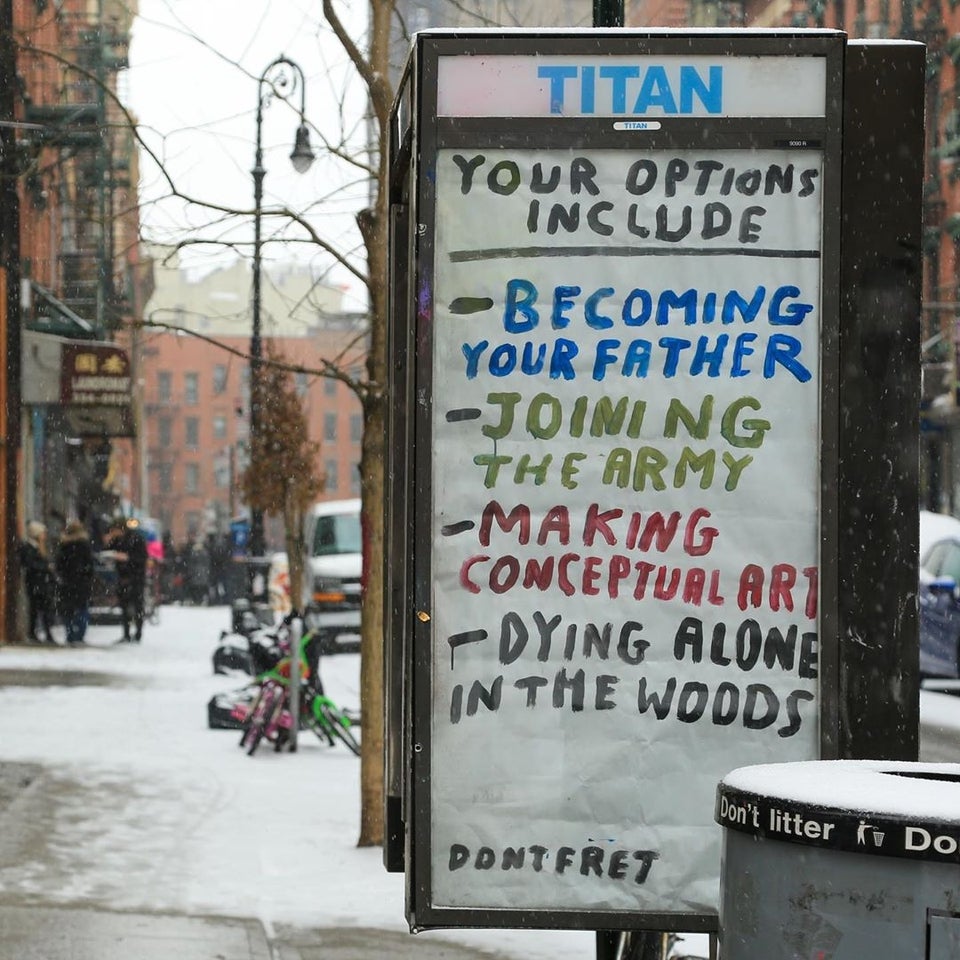 TITAN
TITAN
YOUR OPTIONS
INCLUDE
- BECOMING
YOUR FATHER
- JOINING
THE ARMY
- MAKING
CONCEPTUAL ART
- DYING ALONE
IN THE WOODS
DONT FRET
Don't litter Do
LAUNDROMAT